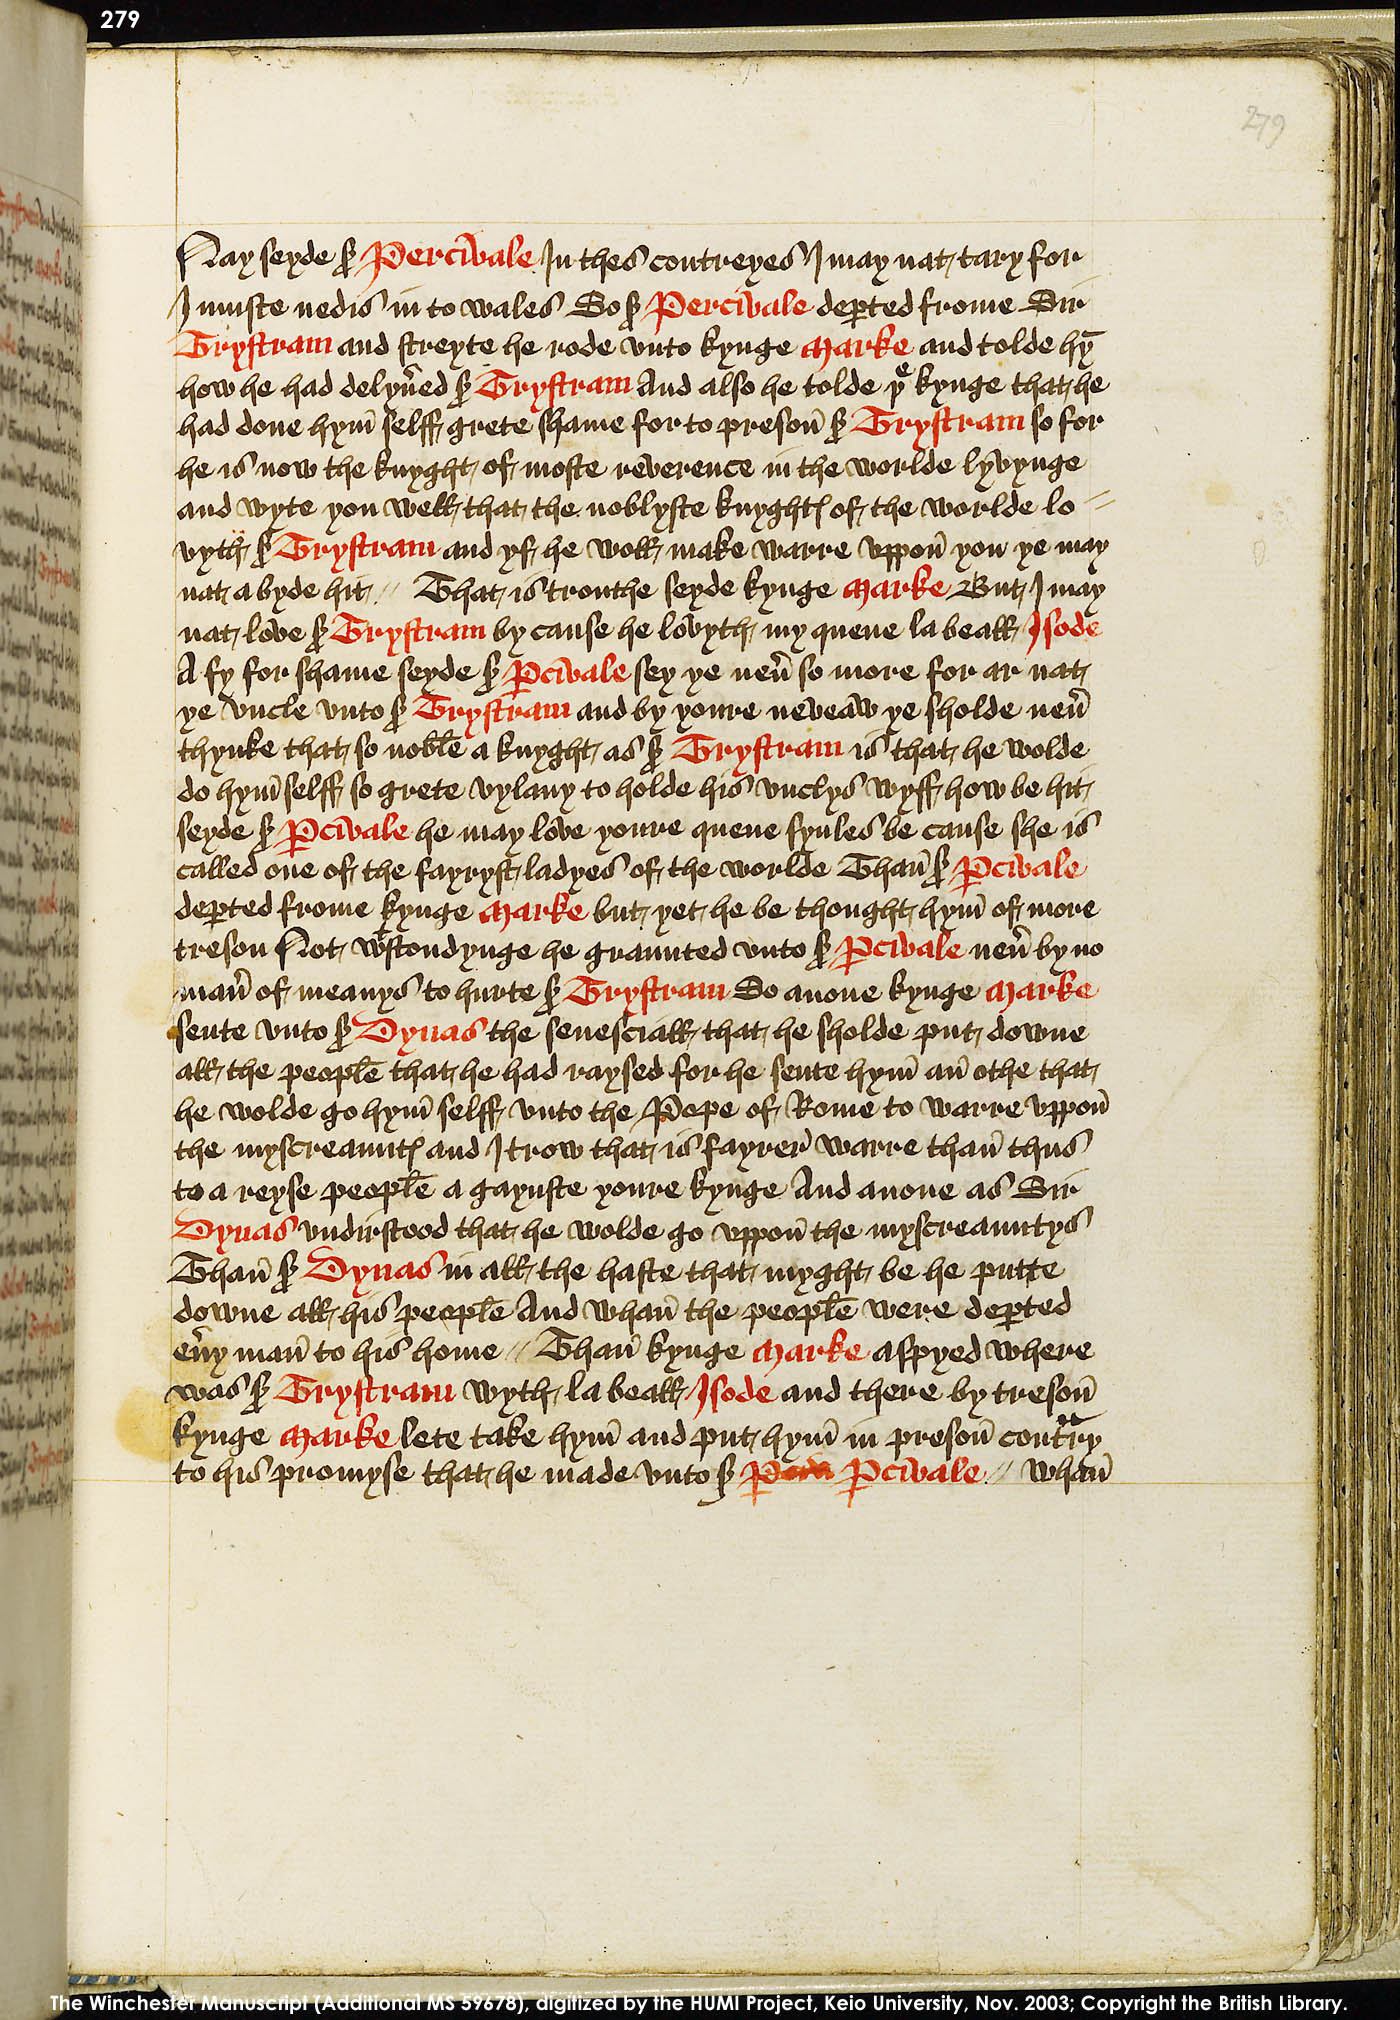 279
279
Nay seyde sͬ Percivale In thes contreyes I may nat tary for
I muste nedis in to wales So sͬ Percivale deꝑted frome Sir
Trystram and streyte he rode vnto kynge Marke and tolde hym̄
how he had delyũed sͬ Trystram And also he tolde yͤ kynge that he
had done hym̄ selff grete shame for to preson̄ sͬ Trystram so for
he is now the knyght of moste reverence in the worlde lyvynge
and wyte you well that the noblyste knyghtꝭ of the worlde lo =
vyth sͬ Trystram and yf he woll make warre vppon̄ you ye may
nat a byde hit // That is trouthe seyde kynge Marke But I may
nat love sͬ Trystram by cause he lovyth my quene la beall Isode
A fy for shame seyde sͬ Ꝑcivale sey ye neũ so more for ar nat
ye vncle vnto sͬ Trystram and by youre neveaw ye sholde neũ
thynke that so noble a knyght as sͬ Trystram is that he wolde
do hym̄ selff so grete vylany to holde his vnclys wyff how be hit
seyde sͬ Ꝑcivale he may love youre quene synles be cause she is
called one of the fayryst ladyes of the worlde Than̄ sͬ Ꝑcivale
deꝑted frome kynge Marke but yet he be thought hym̄ of more
treson Not wͭstondynge he graunted vnto sͬ Ꝑcivale neũ by no
man̄ of meanys to hurte sͬ Trystram So anone kynge Marke
sente vnto sͬ Dynas the senesciall that he sholde put downe
all the people that he had raysed for he sente hym̄ an̄ othe that
he wolde go hym̄ selff vnto the Pope of Rome to warre vppon̄
the myscreauntꝭ and I trow that is fayrer warre than̄ thus
to a reyse people a gaynste youre kynge And anone as Sir
Dynas vndirstood that he wolde go vppon̄ the myscreauntys
Than̄ sͬ Dynas in all the haste that myght be he putte
downe all his people And whan̄ the people were deꝑted
eũy man̄ to his home // Than̄ kynge Marke aspyed where
was sͬ Trystram wyth la beall Isode and there by treson̄
kynge Marke lete take hym̄ and put hym̄ in preson̄ contͬry
to his promyse that he made vnto sͬ Ꝑcivale // Whan̄
The Winchester Manuscript (Additional MS 59678), digitized by the HUMI Project, Keio University, Nov. 2003; Copyright the British Library.